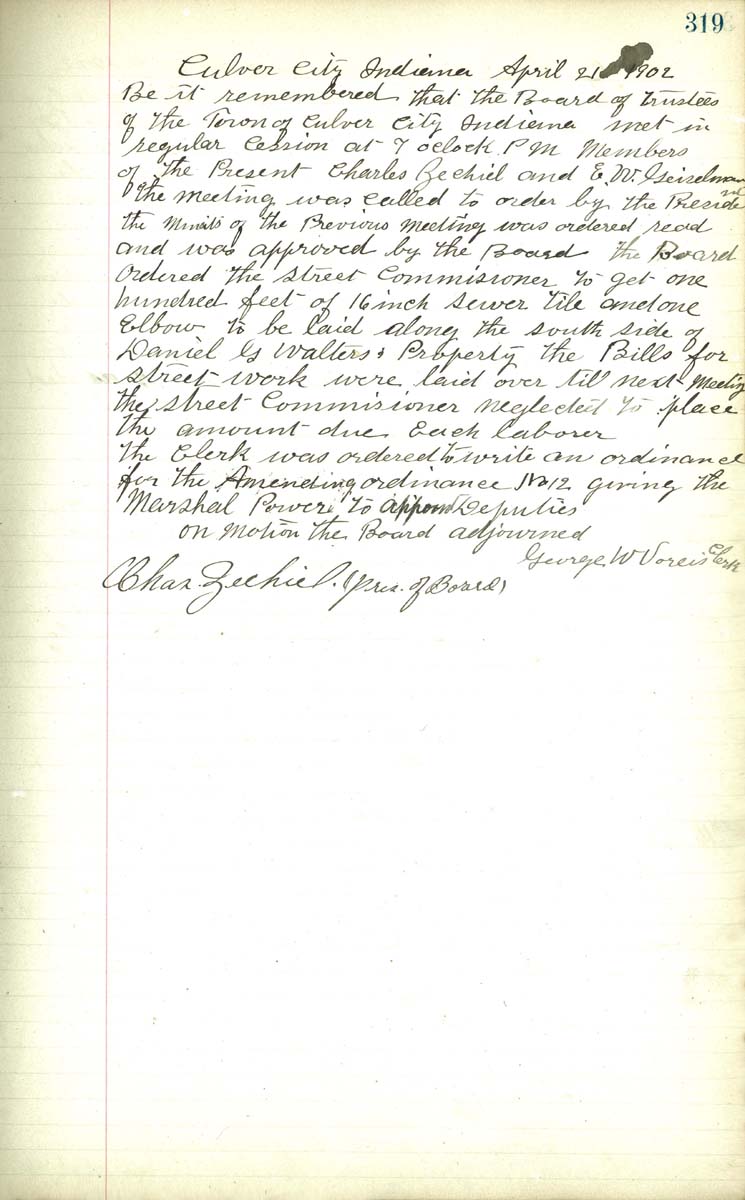 319
Culver City Indiana April 21 1902
Be it remembered that the Board of Trustees
of the Town of Culver City Indiana met in
regular Cession at 7 oclock P M Members
of the Present Charles Zechiel and E. W. Geiselman
the meeting was called to order by the President
the Minits of the Previous Meeting was ordered read
and was approved by the Board the Board
ordered the street Commisioner to get one
hundred feet of 16 inch sewer tile and one
Elbow to be laid along the south side of
Daniel G Walters Property the Bills for
street work were laid over till next Meeting
the street Commisioner neglected to place
the amount due Each laborer
the Clerk was ordered to write an ordinance
for the Amending ordinance No 12 giving the
Marshal Power to appoint Deputies
on Motion the Board adjourned
George W Voreis Clerk
Chas. Zechiel. (Pres. of Board)